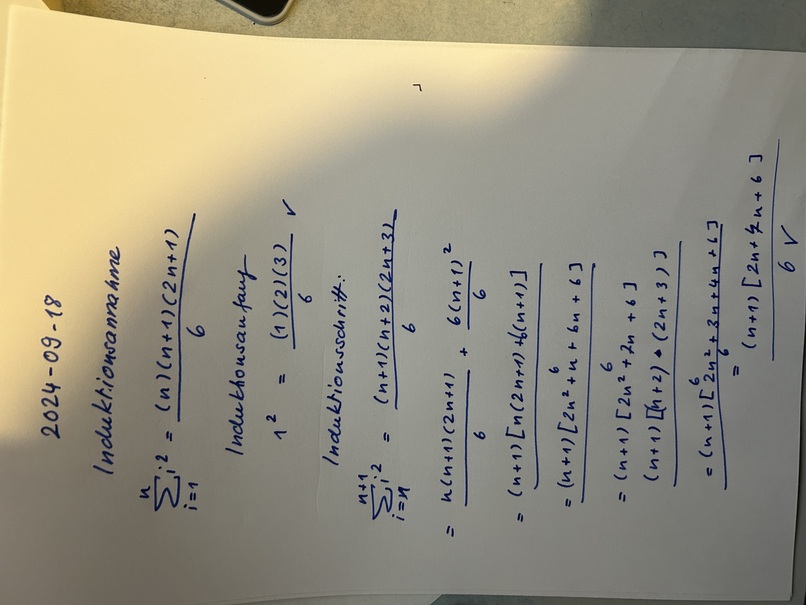 2024-09-18
Induktionsannahme
n
∑ i² = (n)(n+1)(2n+1)
i=1
6
Induktionsanfang
1² = (1)(2)(3) ✓
6
Induktionsschritt:
n+1
∑ i² = (n+1)(n+2)(2n+3)
i=n
6
= n(n+1)(2n+1) + 6(n+1)²
6 6
= (n+1)[n(2n+1)+6(n+1)]
6
= (n+1)[2n²+n+6n+6]
6
= (n+1)[2n²+7n+6]
(n+1)[(n+2)*(2n+3)]
6
= (n+1)[2n²+3n+4n+6]
= (n+1)[2n+7n+6]
6 ✓